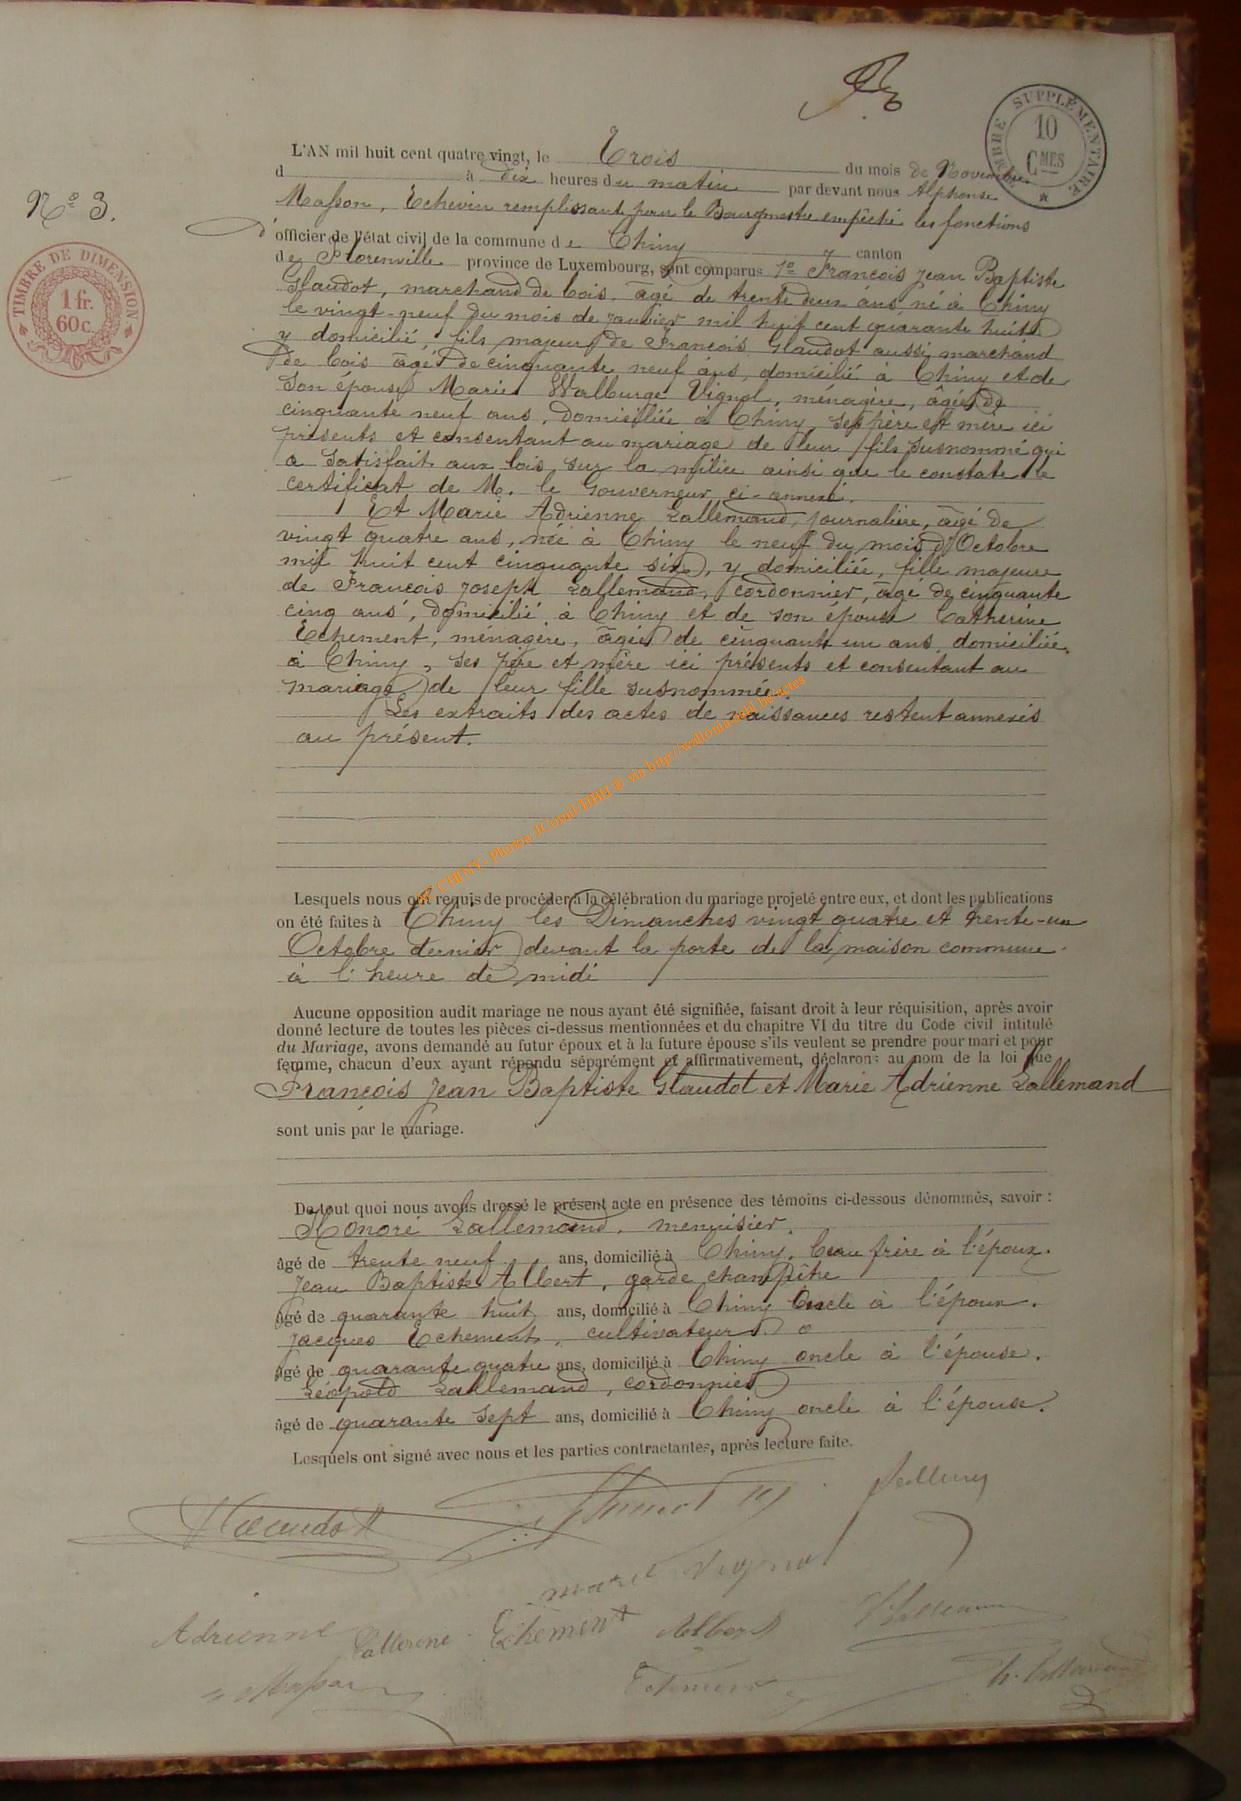 TIMBRE SUPPLÉMENTAIRE
10
CMES
N° 3.
TIMBRE DE DIMENSION
1 fr.
60 c.
L'AN mil huit cent quatre vingt, le Trois du mois de Novembre
d à dix heures du matin par devant nous Alphonse
Masson, Echevin remplissant pour le Bourgmestre empêché les fonctions
d'officier de l'état civil de la commune de Chiny canton
de Florenville province de Luxembourg, sont comparus 1° François Jean Baptiste
Glaudot, marchand de bois, âgé de trente deux ans, né à Chiny
le vingt-neuf du mois de janvier mil huit cent quarante huit
y domicilié, fils majeur de François Glaudot aussi marchand
de bois âgé de cinquante neuf ans, domicilié à Chiny et de
son épouse Marie Walburge Vignol, ménagère, âgée de
cinquante neuf ans, domiciliée à Chiny, ses père et mère ici
présents et consentant au mariage de leur fils susnommé qui
a satisfait aux lois sur la milice ainsi que le constate le
certificat de M. le Gouverneur ci-annexé.
Et Marie Adrienne Lallemand, journalière, âgé de
vingt quatre ans, née à Chiny le neuf du mois d'Octobre
mil huit cent cinquante six, y domiciliée, fille majeure
de François Joseph Lallemand, cordonnier, âgé de cinquante
cinq ans, domicilié à Chiny et de son épouse Catherine
Echement, ménagère, âgée de cinquante un ans domiciliée
à Chiny, ses père et mère ici présents et consentant au
mariage de leur fille susnommée.
Les extraits des actes de naissances restent annexés
au présent.
CHINY - Photos JComil HBH © via http://wallonia.field.be/actes
Lesquels nous ont requis de procéder à la célébration du mariage projeté entre eux, et dont les publications
on été faites à Chiny les Dimanches vingt quatre et trente-un
Octobre dernier devant la porte de la maison commune
à l'heure de midi
Aucune opposition audit mariage ne nous ayant été signifiée, faisant droit à leur réquisition, après avoir
donné lecture de toutes les pièces ci-dessus mentionnées et du chapitre VI du titre du Code civil intitulé
du Mariage, avons demandé au futur époux et à la future épouse s'ils veulent se prendre pour mari et pour
femme, chacun d'eux ayant répondu séparément et affirmativement, déclarons au nom de la loi que
François Jean Baptiste Glaudot et Marie Adrienne Lallemand
sont unis par le mariage.
De tout quoi nous avons dressé le présent acte en présence des témoins ci-dessous dénommés, savoir :
Honoré Lallemand, menuisier,
âgé de trente neuf ans, domicilié à Chiny, beau frère à l'époux.
Jean Baptiste Albert, garde champêtre
âgé de quarante huit ans, domicilié à Chiny Oncle à l'époux.
Jacques Echement, cultivateur
âgé de quarante quatre ans, domicilié à Chiny oncle à l'épouse.
Léopold Lallemand, cordonnier
âgé de quarante sept ans, domicilié à Chiny oncle à l'épouse.
Lesquels ont signé avec nous et les parties contractantes, après lecture faite.
Glaudot
marie Vignol
Adrienne Catterine Echement Albert
Masson Echement